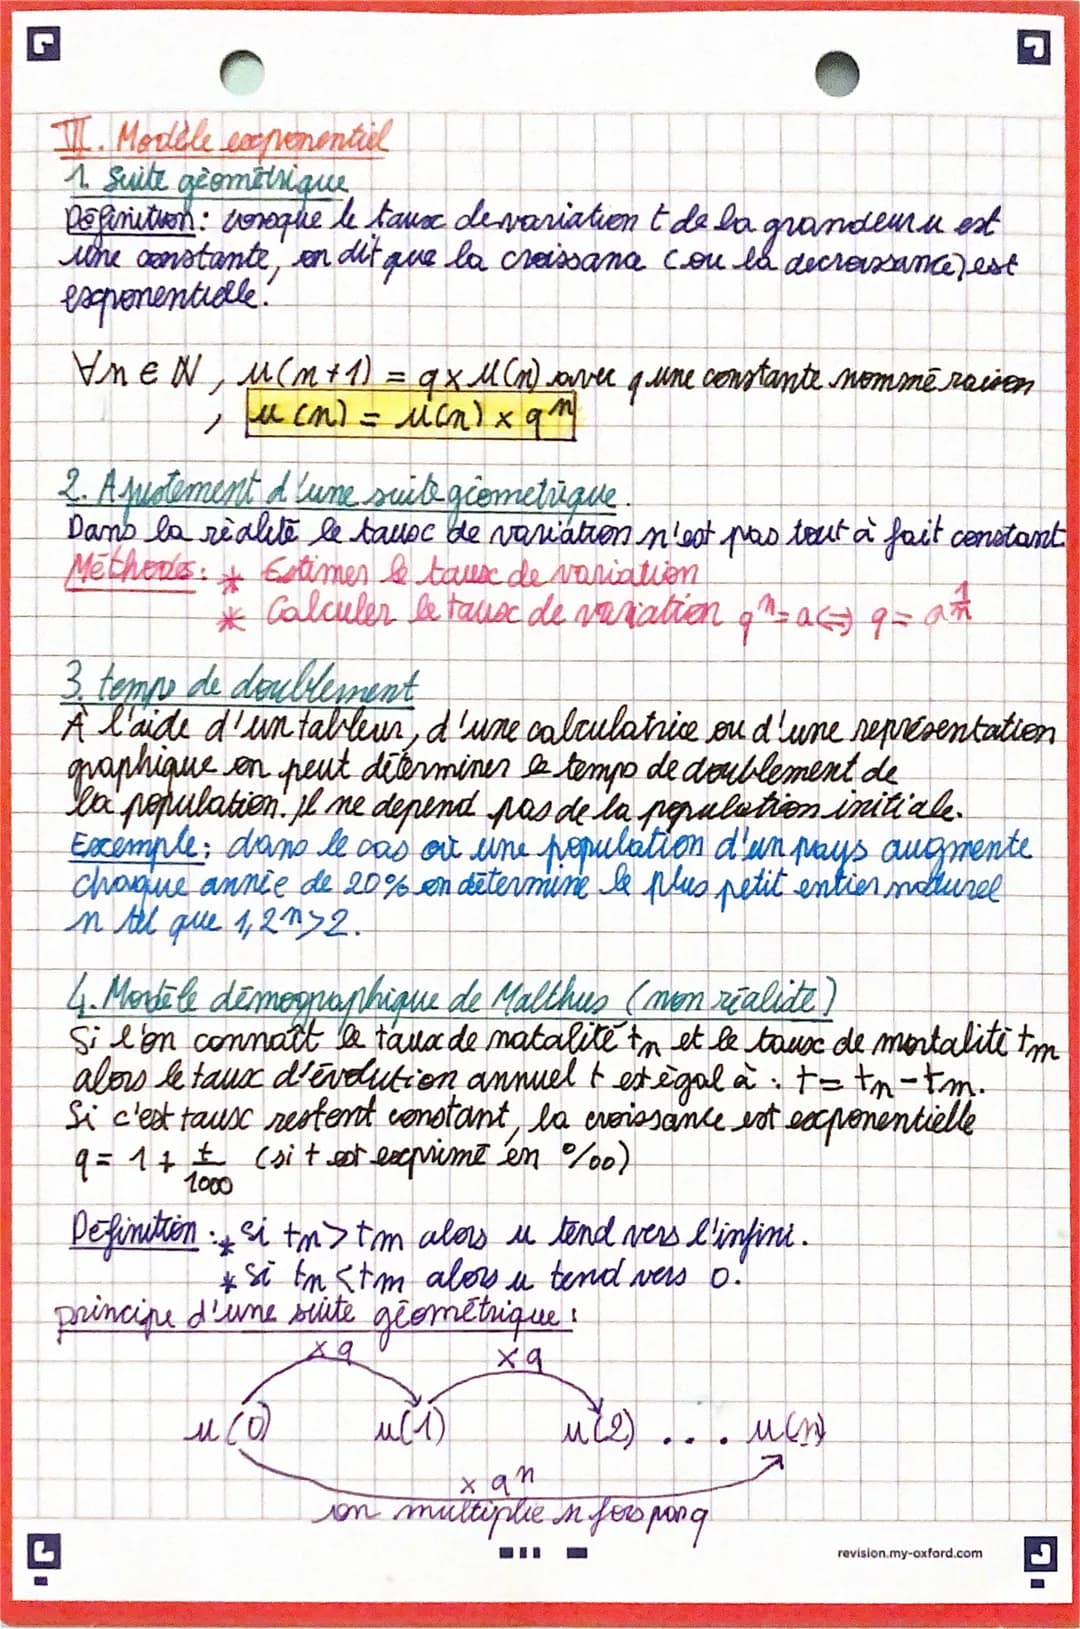 VI. Modèle exponentiel
1. Suite géométrique
Définition : lorsque le taux de variation t de la grandeur u est
une constante, on dit que la croissance (ou la décroissance) est
exponentielle.
∀n ∈ ℕ, u(n+1) = q × u(n) avec q une constante nommé raison
, u(n) = u(n) × qⁿ
2. Ajustement d'une suite géometrique.
Dans la réalité le taux de variation n'est pas tout à fait constant.
Méthodes : * Estimer le taux de variation
* Calculer le taux de variation qⁿ = a ⟺ q = a^(1/n)
3. temps de doublement
À l'aide d'un tableur, d'une calculatrice ou d'une représentation
graphique on peut déterminer le temps de doublement de
la population. Il ne depend pas de la population initiale.
Exemple : dans le cas où une population d'un pays augmente
chaque année de 20% on détermine le plus petit entier naturel
n tel que 1,2ⁿ > 2.
4. Modèle démographique de Malthus (non réalité)
Si l'on connaît le taux de natalité tn et le taux de mortalité tm
alors le taux d'évolution annuel t est égal à : t = tn - tm.
Si c'est taux restent constant, la croissance est exponentielle
q = 1 + t/1000 (si t est exprimé en ‰)
Définition : * Si tn > tm alors u tend vers l'infini.
* Si tn < tm alors u tend vers 0.
principe d'une suite géométrique :
×q ×q
u(0) u(1) u(2) ... u(n)
× qⁿ
on multiplie n fois par q
revision.my-oxford.com